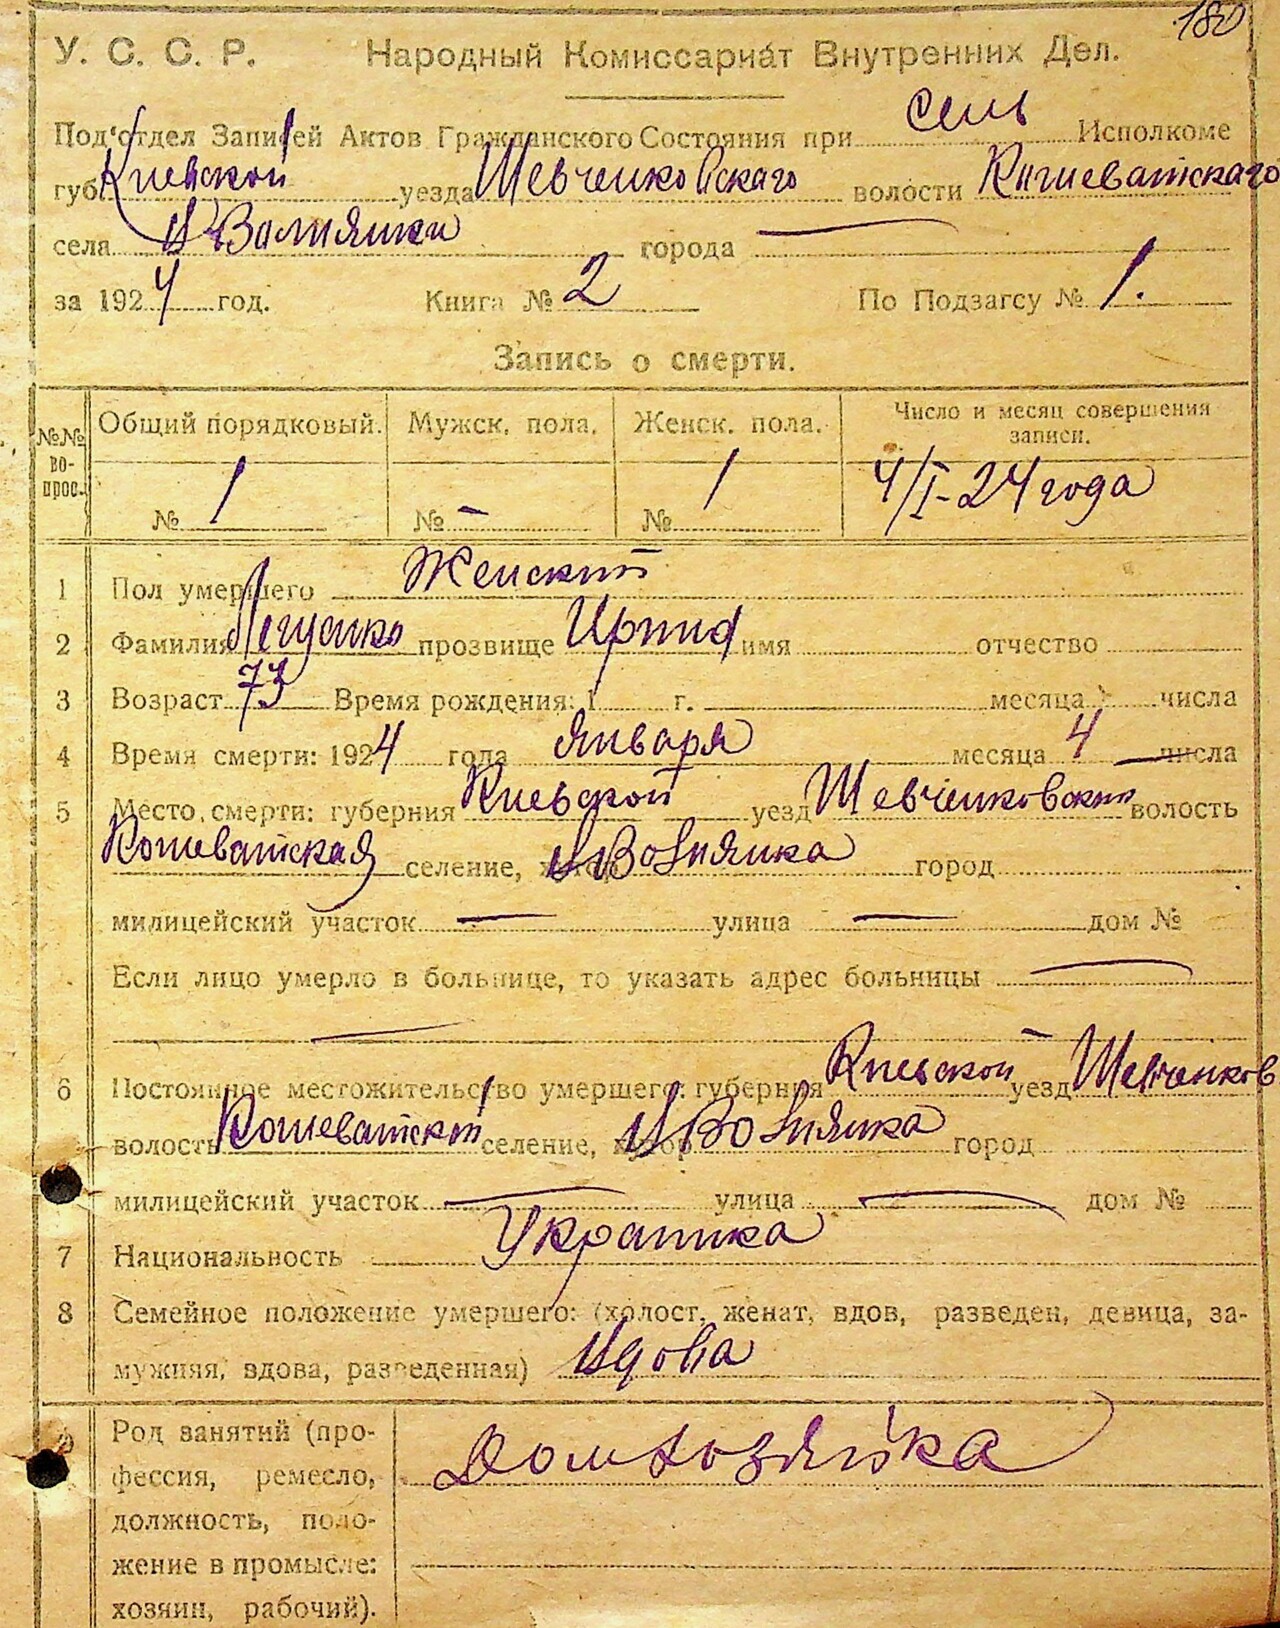 180
У. С. С. Р. Народный Комиссариат Внутренних Дел.
Под'отдел Записей Актов Гражданского Состояния при сель Исполкоме
губ. Киевской уезда Шевченковскаго волости Кошеватскаго
села города —
за 1924 год. Книга № 2 По Подзагсу № 1.
Запись о смерти.
№№ вопрос. Общий порядковый. Мужск. пола. Женск. пола. Число и месяц совершения записи.
№ 1 № - № 1 4/I-24 года
1 Пол умершего Женский
2 Фамилия прозвище имя отчество
3 Возраст 73 Время рождения: 1 г. месяца числа
4 Время смерти: 1924 года января месяца 4 числа
5 Место смерти: губерния Киевской уезд Шевченковский волость
Кошеватская селение, хутор город
милицейский участок — улица — дом №
Если лицо умерло в больнице, то указать адрес больницы —
—
6 Постоянное местожительство умершего: губерния Киевской уезд Шевченков
волость Кошеватской селение, хутор город
милицейский участок — улица — дом №
7 Национальность Украинка
8 Семейное положение умершего: (холост, женат, вдов, разведен, девица, за-
мужняя, вдова, разведенная) Вдова
9 Род занятий (про- Домхозяйка
фессия, ремесло,
должность, поло-
жение в промысле:
хозяин, рабочий).